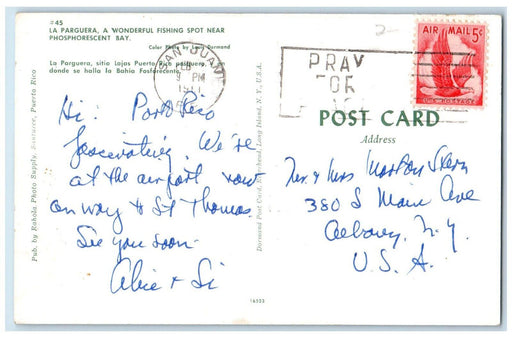 #45
LA PARGUERA, A WONDERFUL FISHING SPOT NEAR
PHOSPHORESCENT BAY.
Color Photo by Louis Dormand
La Parguera, sitio Lajas Puerto Rico pesquero,
donde se halla la Bahia Fosforecente.
SAN JUAN
PM
PRAY
FOR
AIR MAIL 5¢
U.S. POSTAGE
Hi: Porto Rico
fascinating. We're
at the airport now
on way to St Thomas.
See you soon.
Abie + Si
Pub. by Rahola Photo Supply, Santurce, Puerto Rico
Dormand Post Card, Riverhead, Long Island, N. Y., U.S.A.
POST CARD
Address
Mr. & Mrs Morton Stern
380 S Main Ave
Albany, N.Y.
U.S.A.
16523